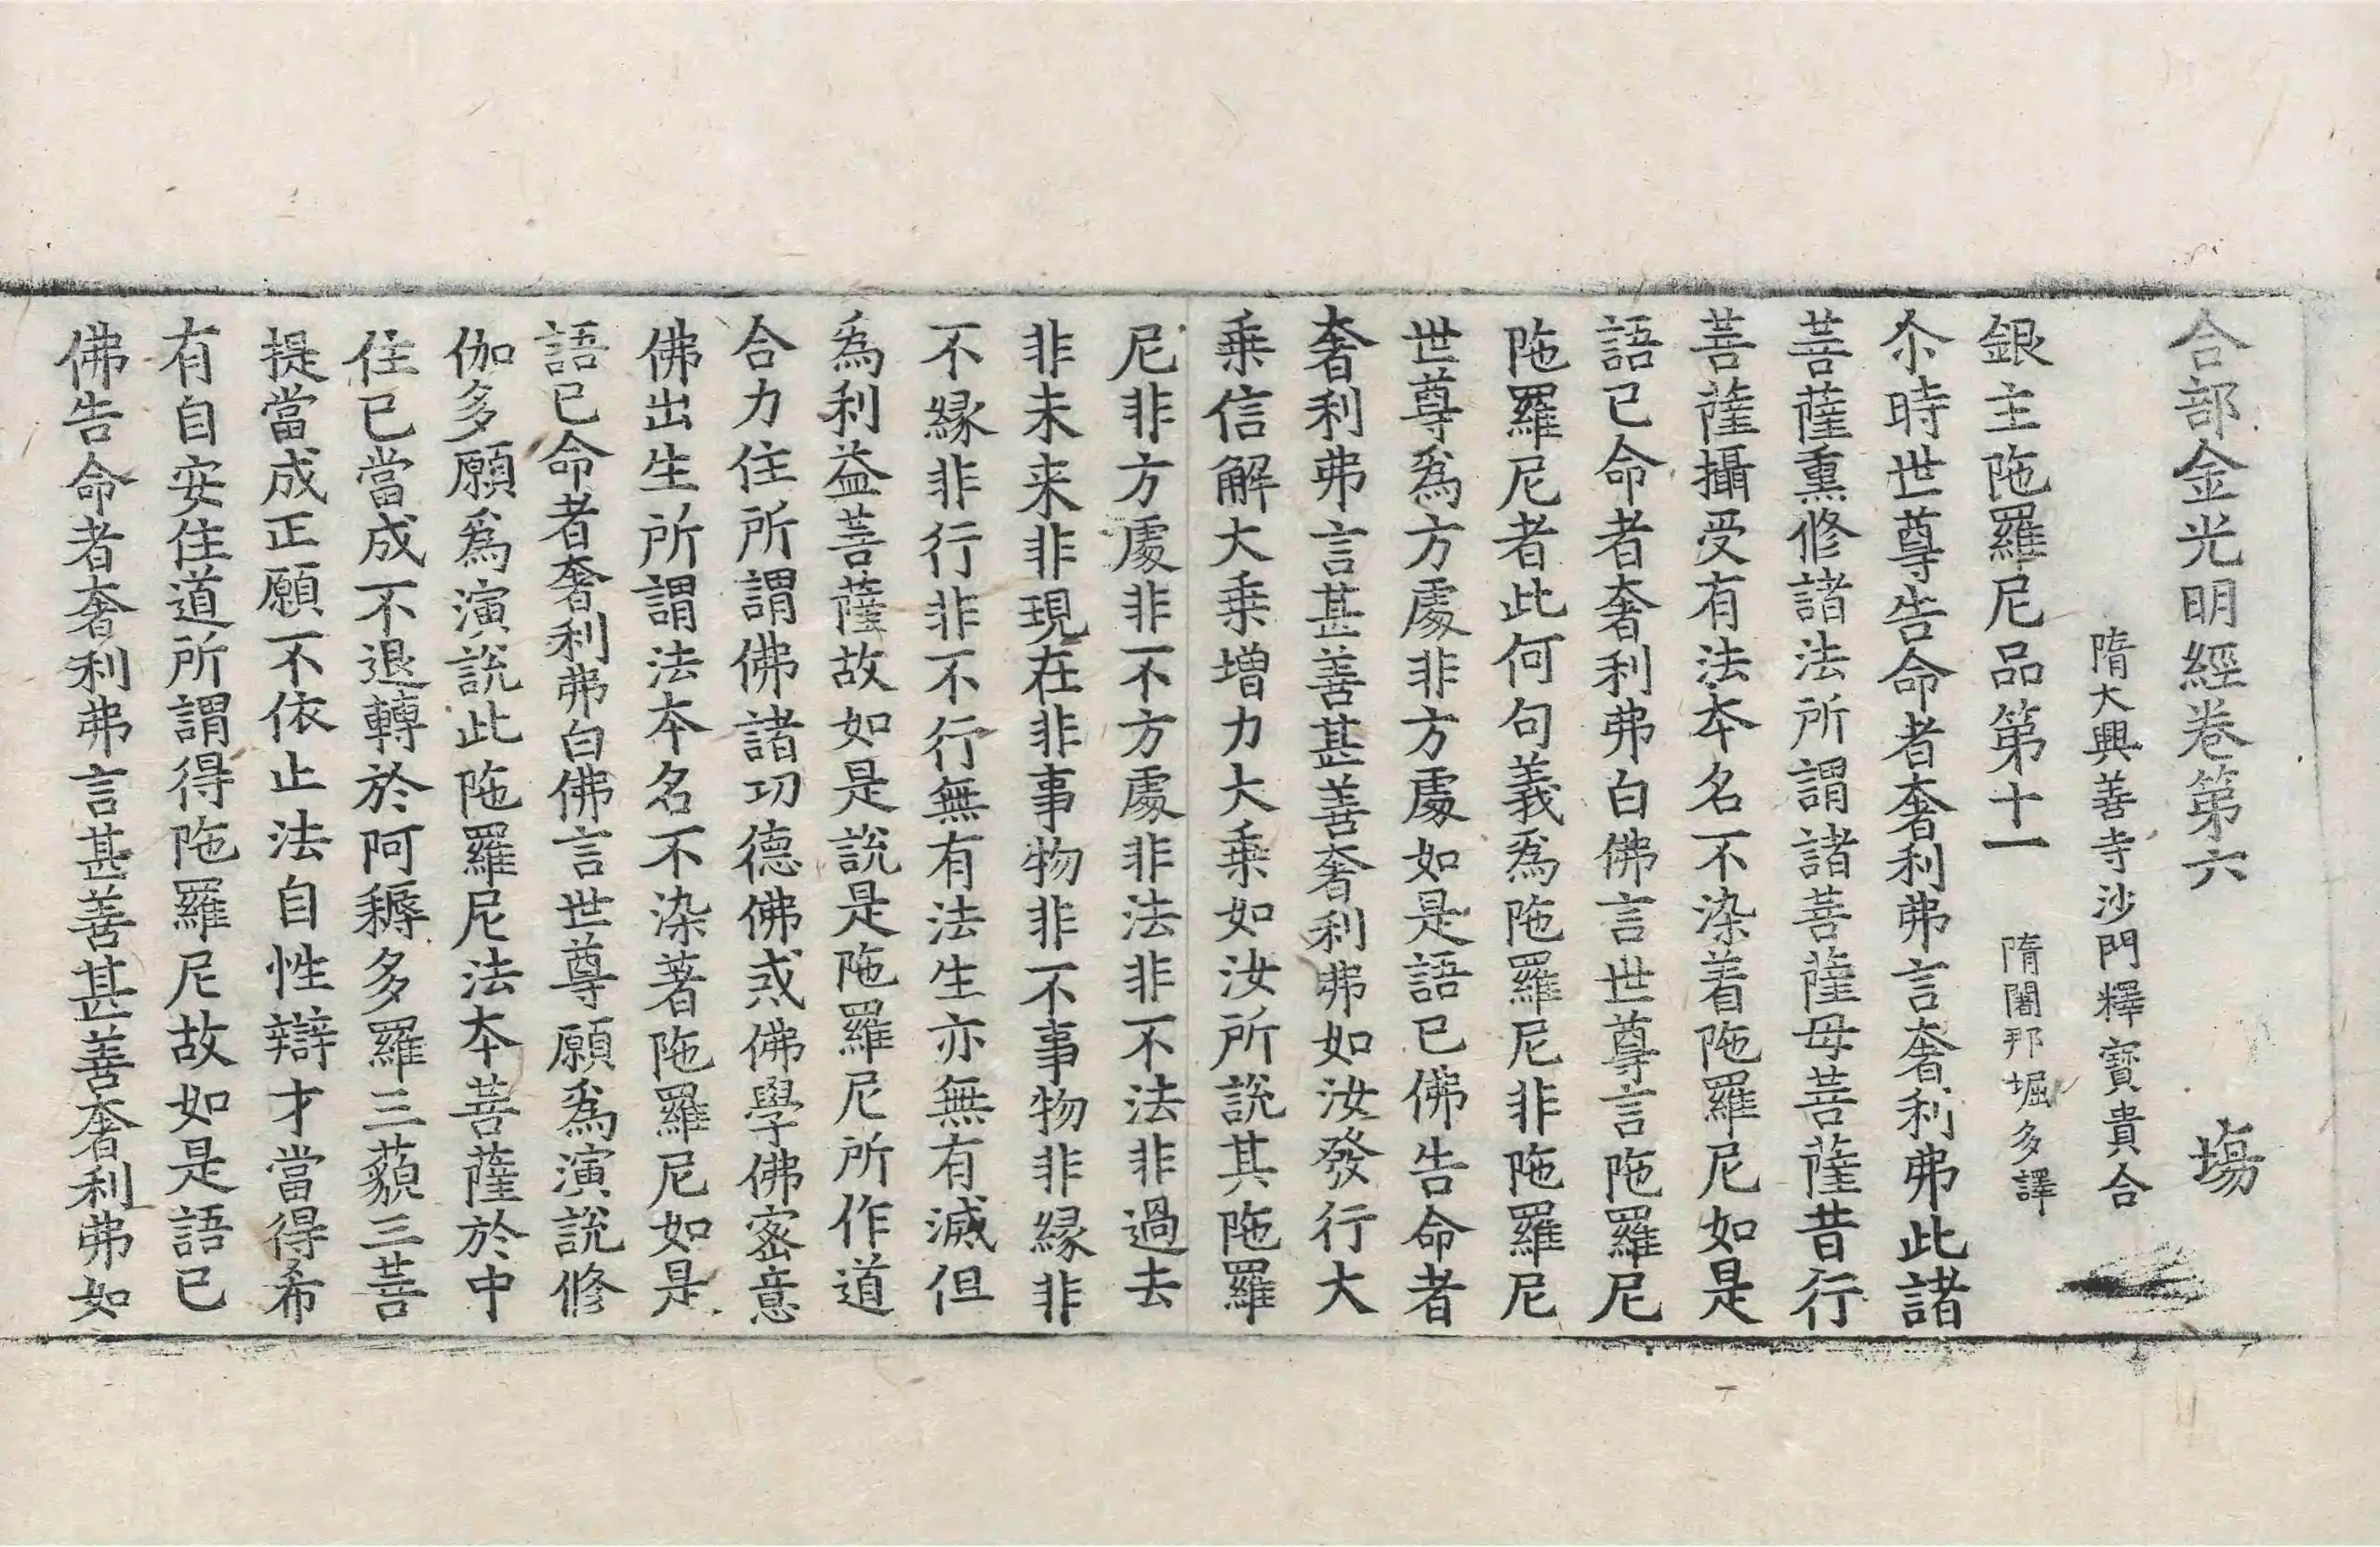 合部金光明經卷第六 塲
隋大興善寺沙門釋寶貴合
銀主陁羅尼品第十一 隋闍那堀多譯
尒時世尊告命者奢利弗言奢利弗此諸
菩薩熏修諸法所謂諸菩薩母菩薩昔行
菩薩攝受有法本名不染着陁羅尼如是
語已命者奢利弗白佛言世尊言陁羅尼
陁羅尼者此何句義爲陁羅尼非陁羅尼
世尊爲方處非方處如是語已佛告命者
奢利弗言甚善甚善奢利弗如汝發行大
乗信解大乗增力大乗如汝所說其陁羅
尼非方處非不方處非法非不法非過去
非未来非現在非事物非不事物非緣非
不緣非行非不行無有法生亦無有滅但
爲利益菩薩故如是說是陁羅尼所作道
合力住所謂佛諸功德佛戒佛學佛密意
佛出生所謂法本名不染著陁羅尼如是
語已命者奢利弗白佛言世尊願爲演說修
伽多願爲演說此陁羅尼法本菩薩於中
住已當成不退轉於阿耨多羅三藐三菩
提當成正願不依止法自性辯才當得希
有自安住道所謂得陁羅尼故如是語已
佛告命者奢利弗言甚善甚善奢利弗如